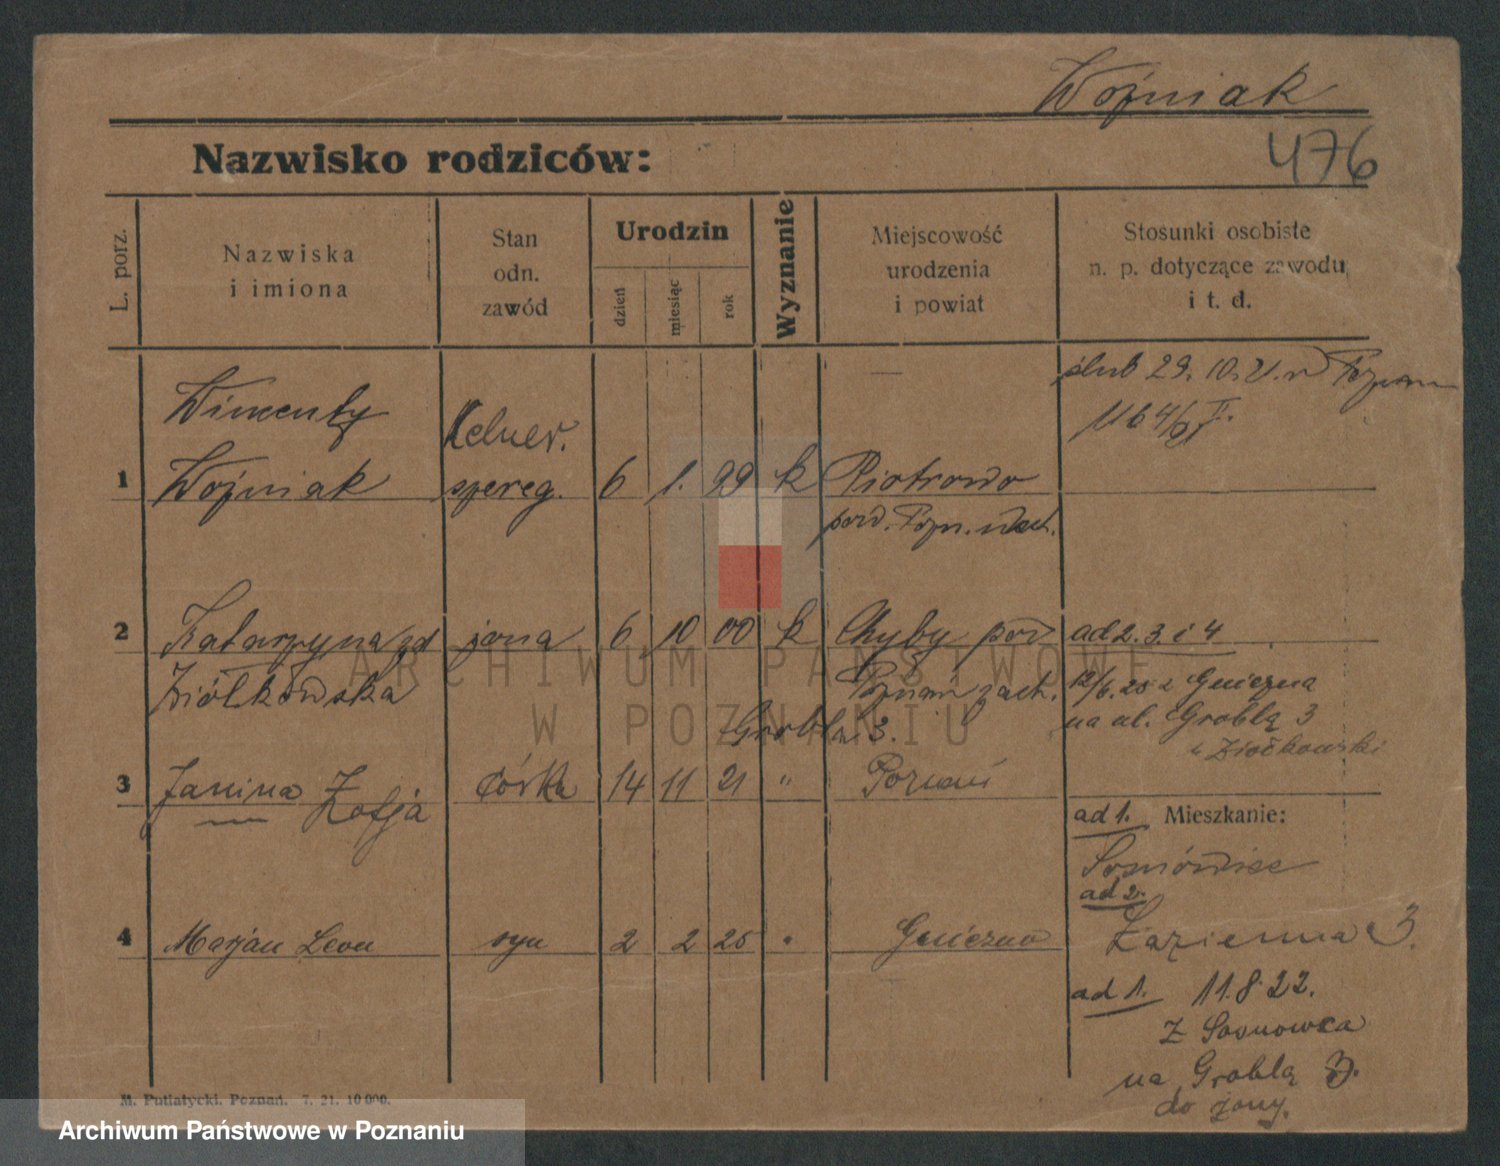 Woźniak
476
Nazwisko rodziców:
L. porz.
Nazwiska
i imiona
Stan
odn.
zawód
Urodzin
dzień
miesiąc
rok
Wyznanie
Miejscowość
urodzenia
i powiat
Stosunki osobiste
n. p. dotyczące zawodu
i t. d.
ślub 29. 10. 21. w Poznan
1164/
Wincenty Kelner.
1 Woźniak 6 1. 99 k Piotrowo
pow. Pozn. wsch.
2 Katarzyna zd żona 6 10 00 k Chyby pow ad 2. 3. i 4
Ziółkowska Poznań zach. 12/6. 25 z Gniezna
Grobla 3. na ul. Groblą 3
u Ziołkowski
3 Janina Zofja córka 14 11 21 " Poznań
ad 1. Mieszkanie:
Sosnówiec
ad 2.
Łazienna 3.
4 Marjan Leon syn 2 2 25 " Gniezno
ad 1. 11. 8. 22.
Z Sosnowca
na Groblą 3.
do żony.
M. Putiatycki. Poznań. 7. 21. 10 000.
ARCHIWUM PAŃSTWOWE
W POZNANIU
Archiwum Państwowe w Poznaniu